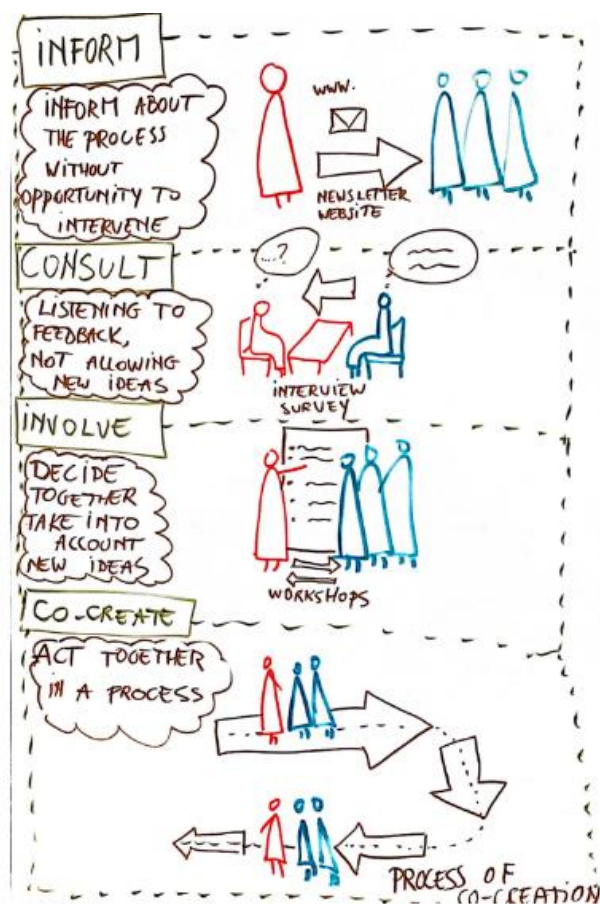 INFORM
INFORM ABOUT
THE PROCESS
WITHOUT
OPPORTUNITY TO
INTERVENE
WWW.
NEWSLETTER
WEBSITE
CONSULT
LISTENING TO
FEEDBACK,
NOT ALLOWING
NEW IDEAS
...?
INTERVIEW
SURVEY
INVOLVE
DECIDE
TOGETHER
TAKE INTO
ACCOUNT
NEW IDEAS
WORKSHOPS
CO-CREATE
ACT TOGETHER
IN A PROCESS
PROCESS OF
CO-CREATION